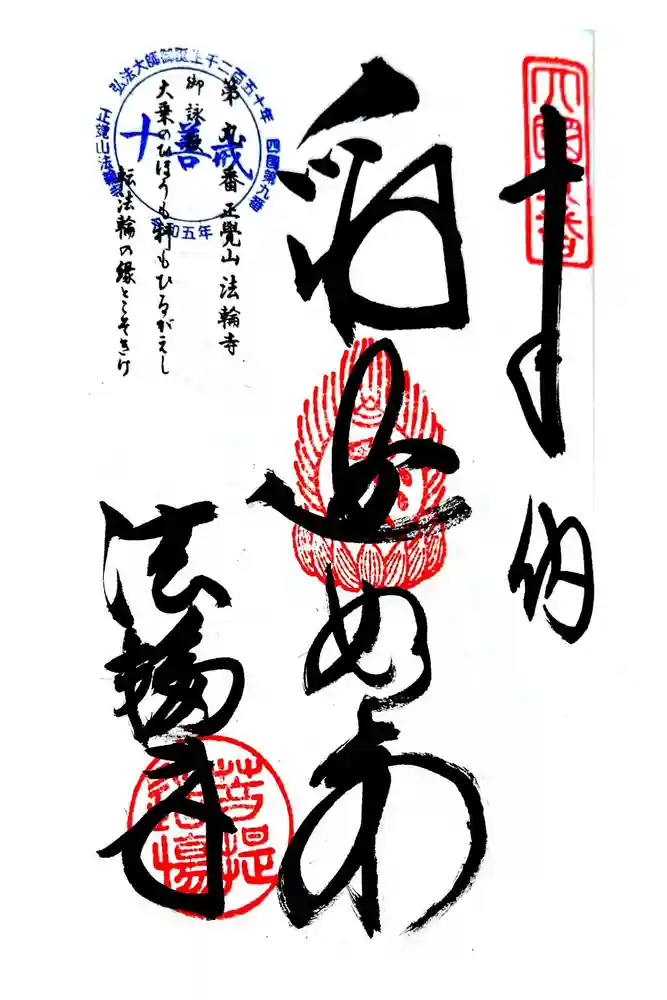 四國第九番
奉納
釈迦如来
法輪寺
菩提道場
第九番 正覺山 法輪寺
御詠歌
大乗のひほうも科もひるがえし
転法輪の縁とこそきけ
弘法大師御誕生千二百五十年
四國第九番
令和五年
正覚山法輪寺
十善戒